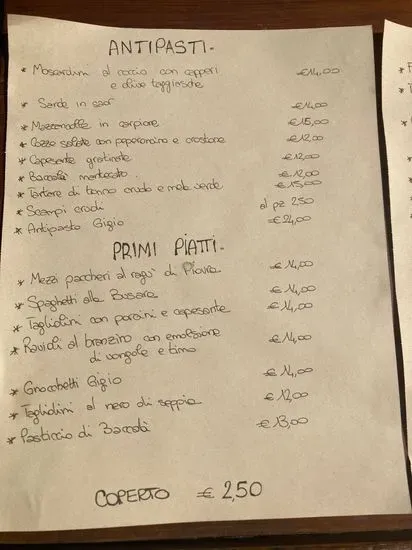 ANTIPASTI-
* Moscardini al coccio con capperi €14,00
e olive taggiasche
* Sarde in saor €14,00
* Mazzancolle in carpione €15,00
* Cozze saltate con peperoncino e crostone €12,00
* Capesante gratinate €12,00
* Baccalà mantecato. €12,00
* Tartare di tonno crudo e mela verde €15,00
* Scampi crudi al pz 2,50
* Antipasto Gigio €24,00
PRIMI PIATTI-
* Mezzi paccheri al ragù di Piovra €14,00
* Spaghetti alla Busara €14,00
* Tagliolini con porcini e capesante €14,00
* Ravioli al branzino con emulsione €14,00
di vongole e timo
* Gnocchetti Gigio €14,00
* Tagliolini al nero di seppia €12,00
* Pasticcio di Baccalà €13,00
COPERTO € 2,50